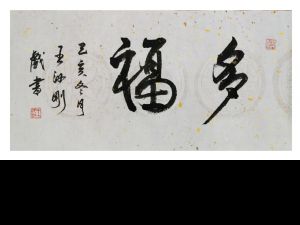 多福
己亥冬月
王海刚
戲書